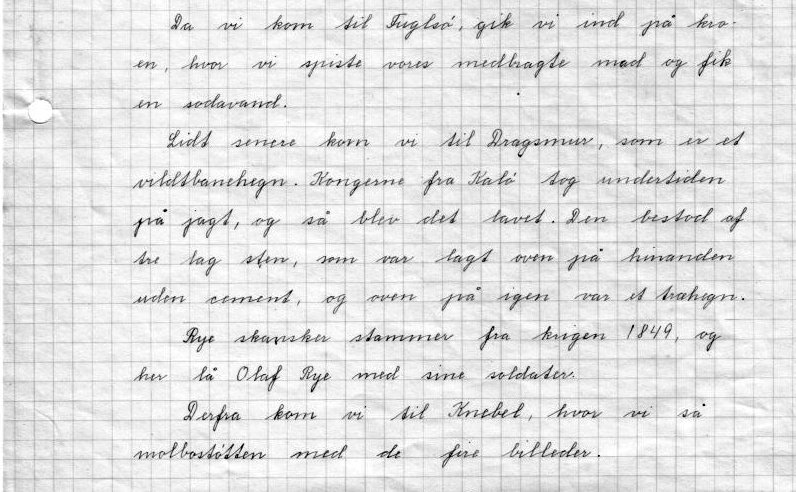 Da vi kom til Fuglsø, gik vi ind på kro-
en, hvor vi spiste vores medbragte mad og fik
en sodavand.
Lidt senere kom vi til Dragsmur, som er et
vildtbanehegn. Kongerne fra Kalø tog undertiden
på jagt, og så blev det lavet. Den bestod af
tre lag sten, som var lagt oven på hinanden
uden cement, og oven på igen var et træhegn.
Rye skansker stammer fra krigen 1849, og
her lå Olaf Rye med sine soldater.
Derfra kom vi til Knebel, hvor vi så
molbostøtten med de fire billeder.